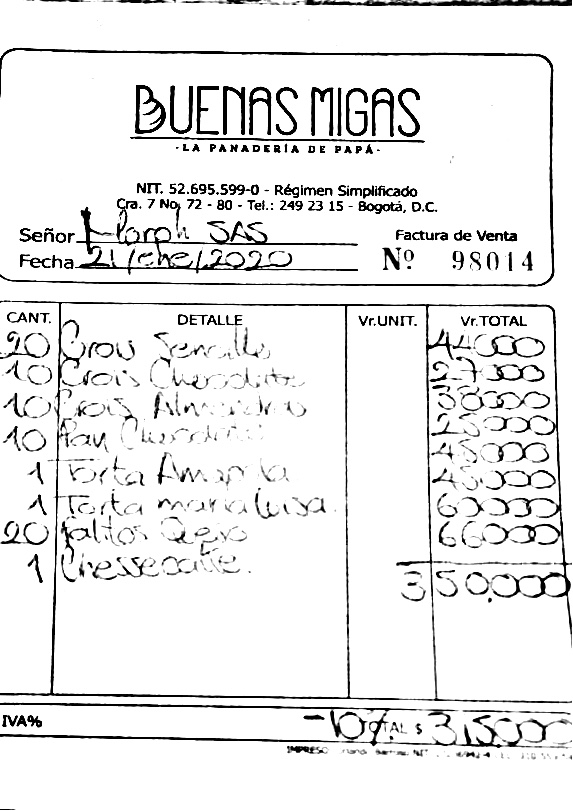 BUENAS MIGAS
·LA PANADERÍA DE PAPÁ·
NIT. 52.695.599-0 - Régimen Simplificado
Cra. 7 No. 72 - 80 - Tel.: 249 23 15 - Bogotá, D.C.
Señor SAS Factura de Venta
Fecha 21/ene/2020 Nº 98014
CANT. DETALLE Vr.UNIT. Vr.TOTAL
20 Crois Sencillo 44000
10 Crois Chocolate 27000
10 Crois Almendras 38000
10 Pan Chocolate 25000
1 Torta Amapola 45000
1 Torta maria luisa. 45000
20 Palitos Queso 60000
1 Chessecake. 66000
350,000
IVA% -10% TOTAL $ 315000
IMPRESO